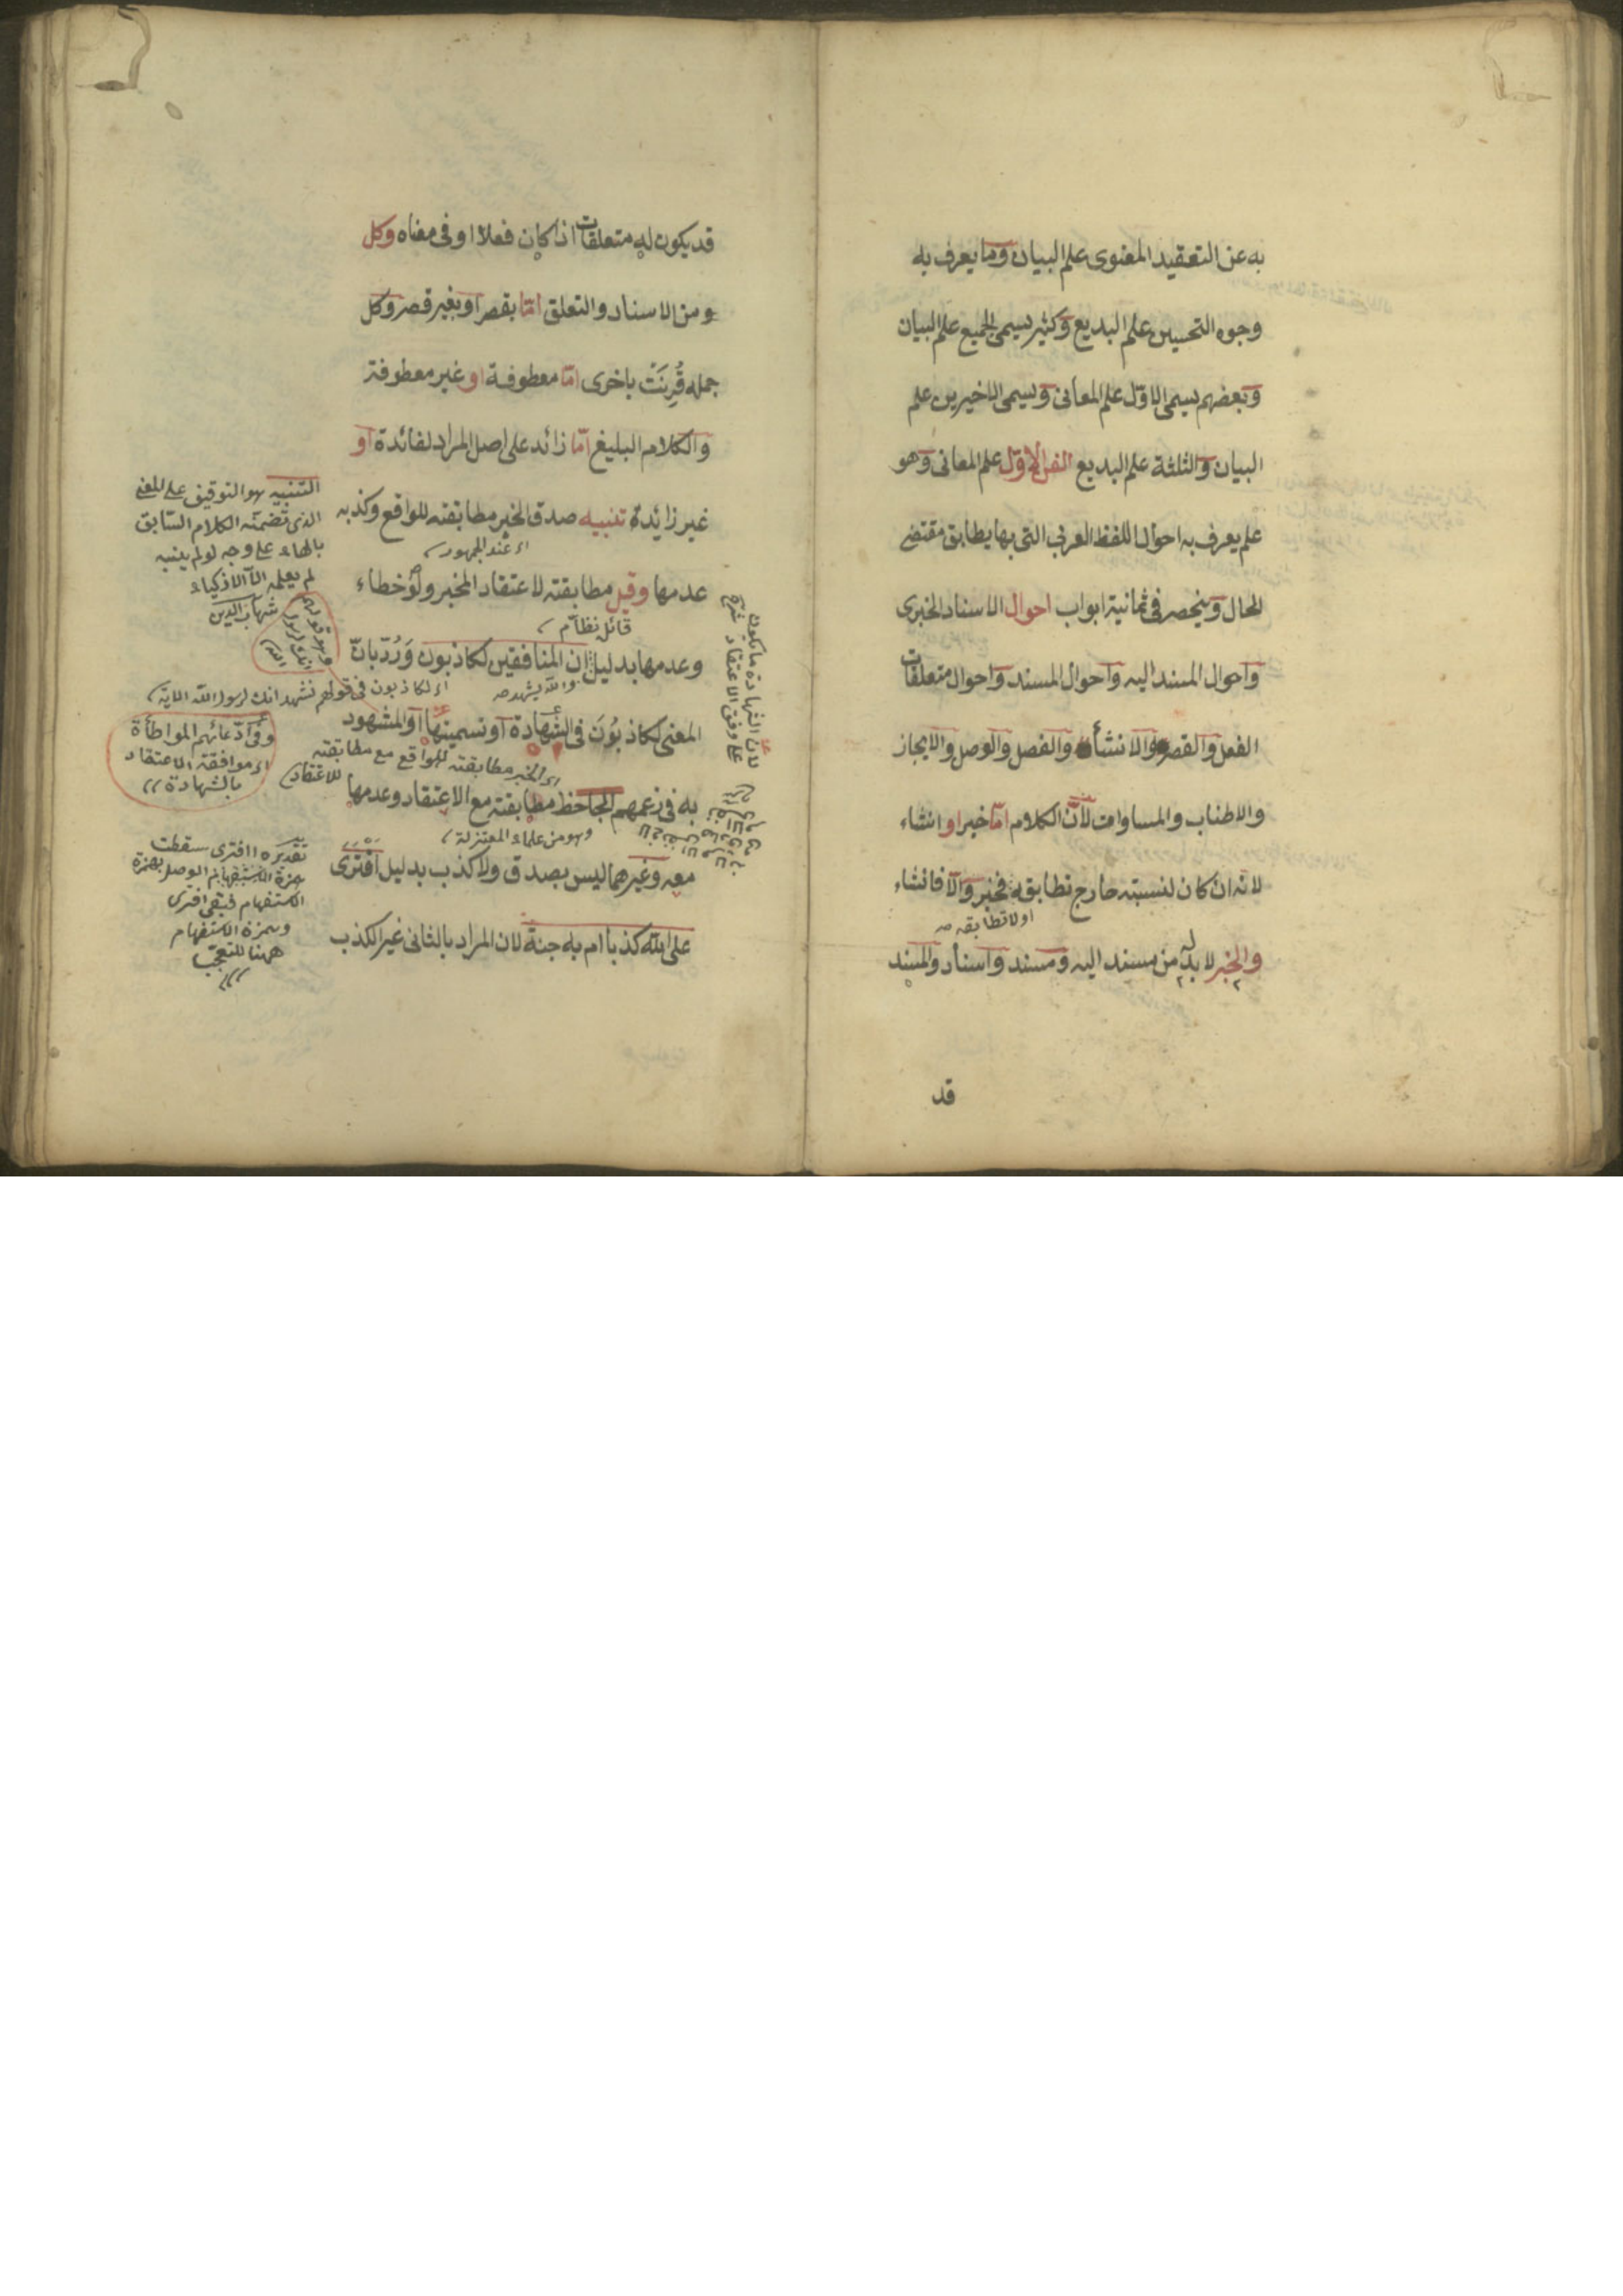 به عن التعقيد المعنوى علم البيان وما يعرف به
وجوه التحسين علم البديع وكثير يسمى الجميع علم البيان
وبعضهم يسمى الاوّل علم المعانى ويسمى الاخيرين علم
البيان والثلثة علم البديع الفن الاوّل علم المعانى وهو
علم يعرف به احوال اللفظ العربى التى بها يطابق مقتضى
الحال وينحصر فى ثمانية ابواب احوال الاسناد الخبرى
واحوال المسند اليه واحوال المسند واحوال متعلقات
الفعل والقصر والانشأ والفصل والوصل والايجاز
والاطناب والمساوات لانّ الكلام امّا خبر او انشاء
لانه ان كان لنسبته خارج تطابقه فخبر والّا فانشاء
اولا تطابقه صه
والخبر لا بدّ له من مسند اليه ومسند واسناد والمسند
قد
قد يكون له متعلقات اذا كان فعلا او فى معناه وكل
ومن الاسناد والتعلق امّا بقصر او بغير قصر وكل
جمله قُرِنَتْ باخرى امّا معطوفة او غير معطوفة
والكلام البليغ امّا زائد على اصل المراد لفائدة او
غير زائدة تنبيه صدق الخبر مطابقته للواقع وكذبه
اى عند الجمهور
عدمها وقيل مطابقته لاعتقاد المخبر ولو خطاء
قائل نظّام
وعدمها بدليل ان المنافقين لكاذبون وَرُدّ بانّ
والله يشهد صه
اى لكاذبون فى قولهم نشهد انك لرسول الله الاية
المعنى لكاذبُونَ فى الشّهادة او تسميتها او المشهود
اى الخبر مطابقته للواقع مع مطابقته للاعتقاد
به فى زعمهم الجاحظ مطابقته مع الاعتقاد وعدمها
وهو من علماء المعتزلة
معه وغيرهما ليس بصدق ولا كذب بدليل افترى
على الله كذبا ام به جنة لان المراد بالثانى غير الكذب
التنبيه هو التوقيف على المعنى
الذى تضمنه الكلام السّابق
بالهاء على وجه لو لم ينبه
لم يعلمه الّا الاذكياء
شهاب الدين
وهو قولهم
انك لرسول
الله
وفى ادّعائهم المواطأة
اى موافقة الاعتقاد
بالشهادة
تقديره اافترى سقطت
همزة الوصل بهمزة
الاستفهام فبقى افترى
وهمزة الاستفهام
ههنا للتعجّب
لان الشهادة ما يكون
على وفق الاعتقاد